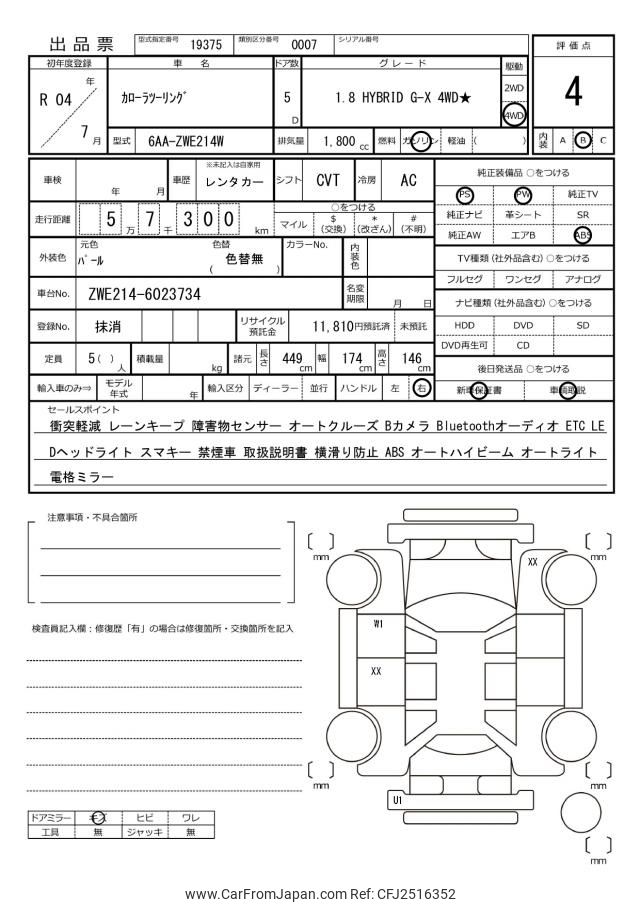 出品票 型式指定番号 19375 類別区分番号 0007 シリアル番号
評価点
4
初年度登録 車名 ドア数 グレード 駆動
R 04 年 7 月 カローラツーリング 5 D 1.8 HYBRID G-X 4WD★ 2WD 4WD
型式 6AA-ZWE214W 排気量 1,800 cc 燃料 ガソリン 軽油 ( ) 内装 A B C
車検 年 月 車歴 ※未記入は自家用 レンタカー シフト CVT 冷房 AC
走行距離 5 万 7 千 3 0 0 km ○をつける
マイル $ (交換) * (改ざん) # (不明)
外装色 元色 パール 色替 ( 色替無 ) カラーNo. 内装色
車台No. ZWE214-6023734 名変期限 月 日
登録No. 抹消 リサイクル預託金 11,810円預託済 未預託
定員 5( ) 人 積載量 kg 諸元 長さ 449 cm 幅 174 cm 高さ 146 cm
輸入車のみ⇒ モデル年式 年 輸入区分 ディーラー 並行 ハンドル 左 右
純正装備品 ○をつける
PS PW 純正TV
純正ナビ 革シート SR
純正AW エアB ABS
TV種類 (社外品含む) ○をつける
フルセグ ワンセグ アナログ
ナビ種類 (社外品含む) ○をつける
HDD DVD SD
DVD再生可 CD
後日発送品 ○をつける
新車保証書 車輌取説
セールスポイント
衝突軽減 レーンキープ 障害物センサー オートクルーズ Bカメラ Bluetoothオーディオ ETC LE
Dヘッドライト スマキー 禁煙車 取扱説明書 横滑り防止 ABS オートハイビーム オートライト
電格ミラー
注意事項・不具合箇所
検査員記入欄：修復歴「有」の場合は修復箇所・交換箇所を記入
ドアミラー キズ ヒビ ワレ
工具 無 ジャッキ 無
mm
mm
XX
W1
XX
mm
mm
U1
mm
www.CarFromJapan.com Ref: CFJ2516352